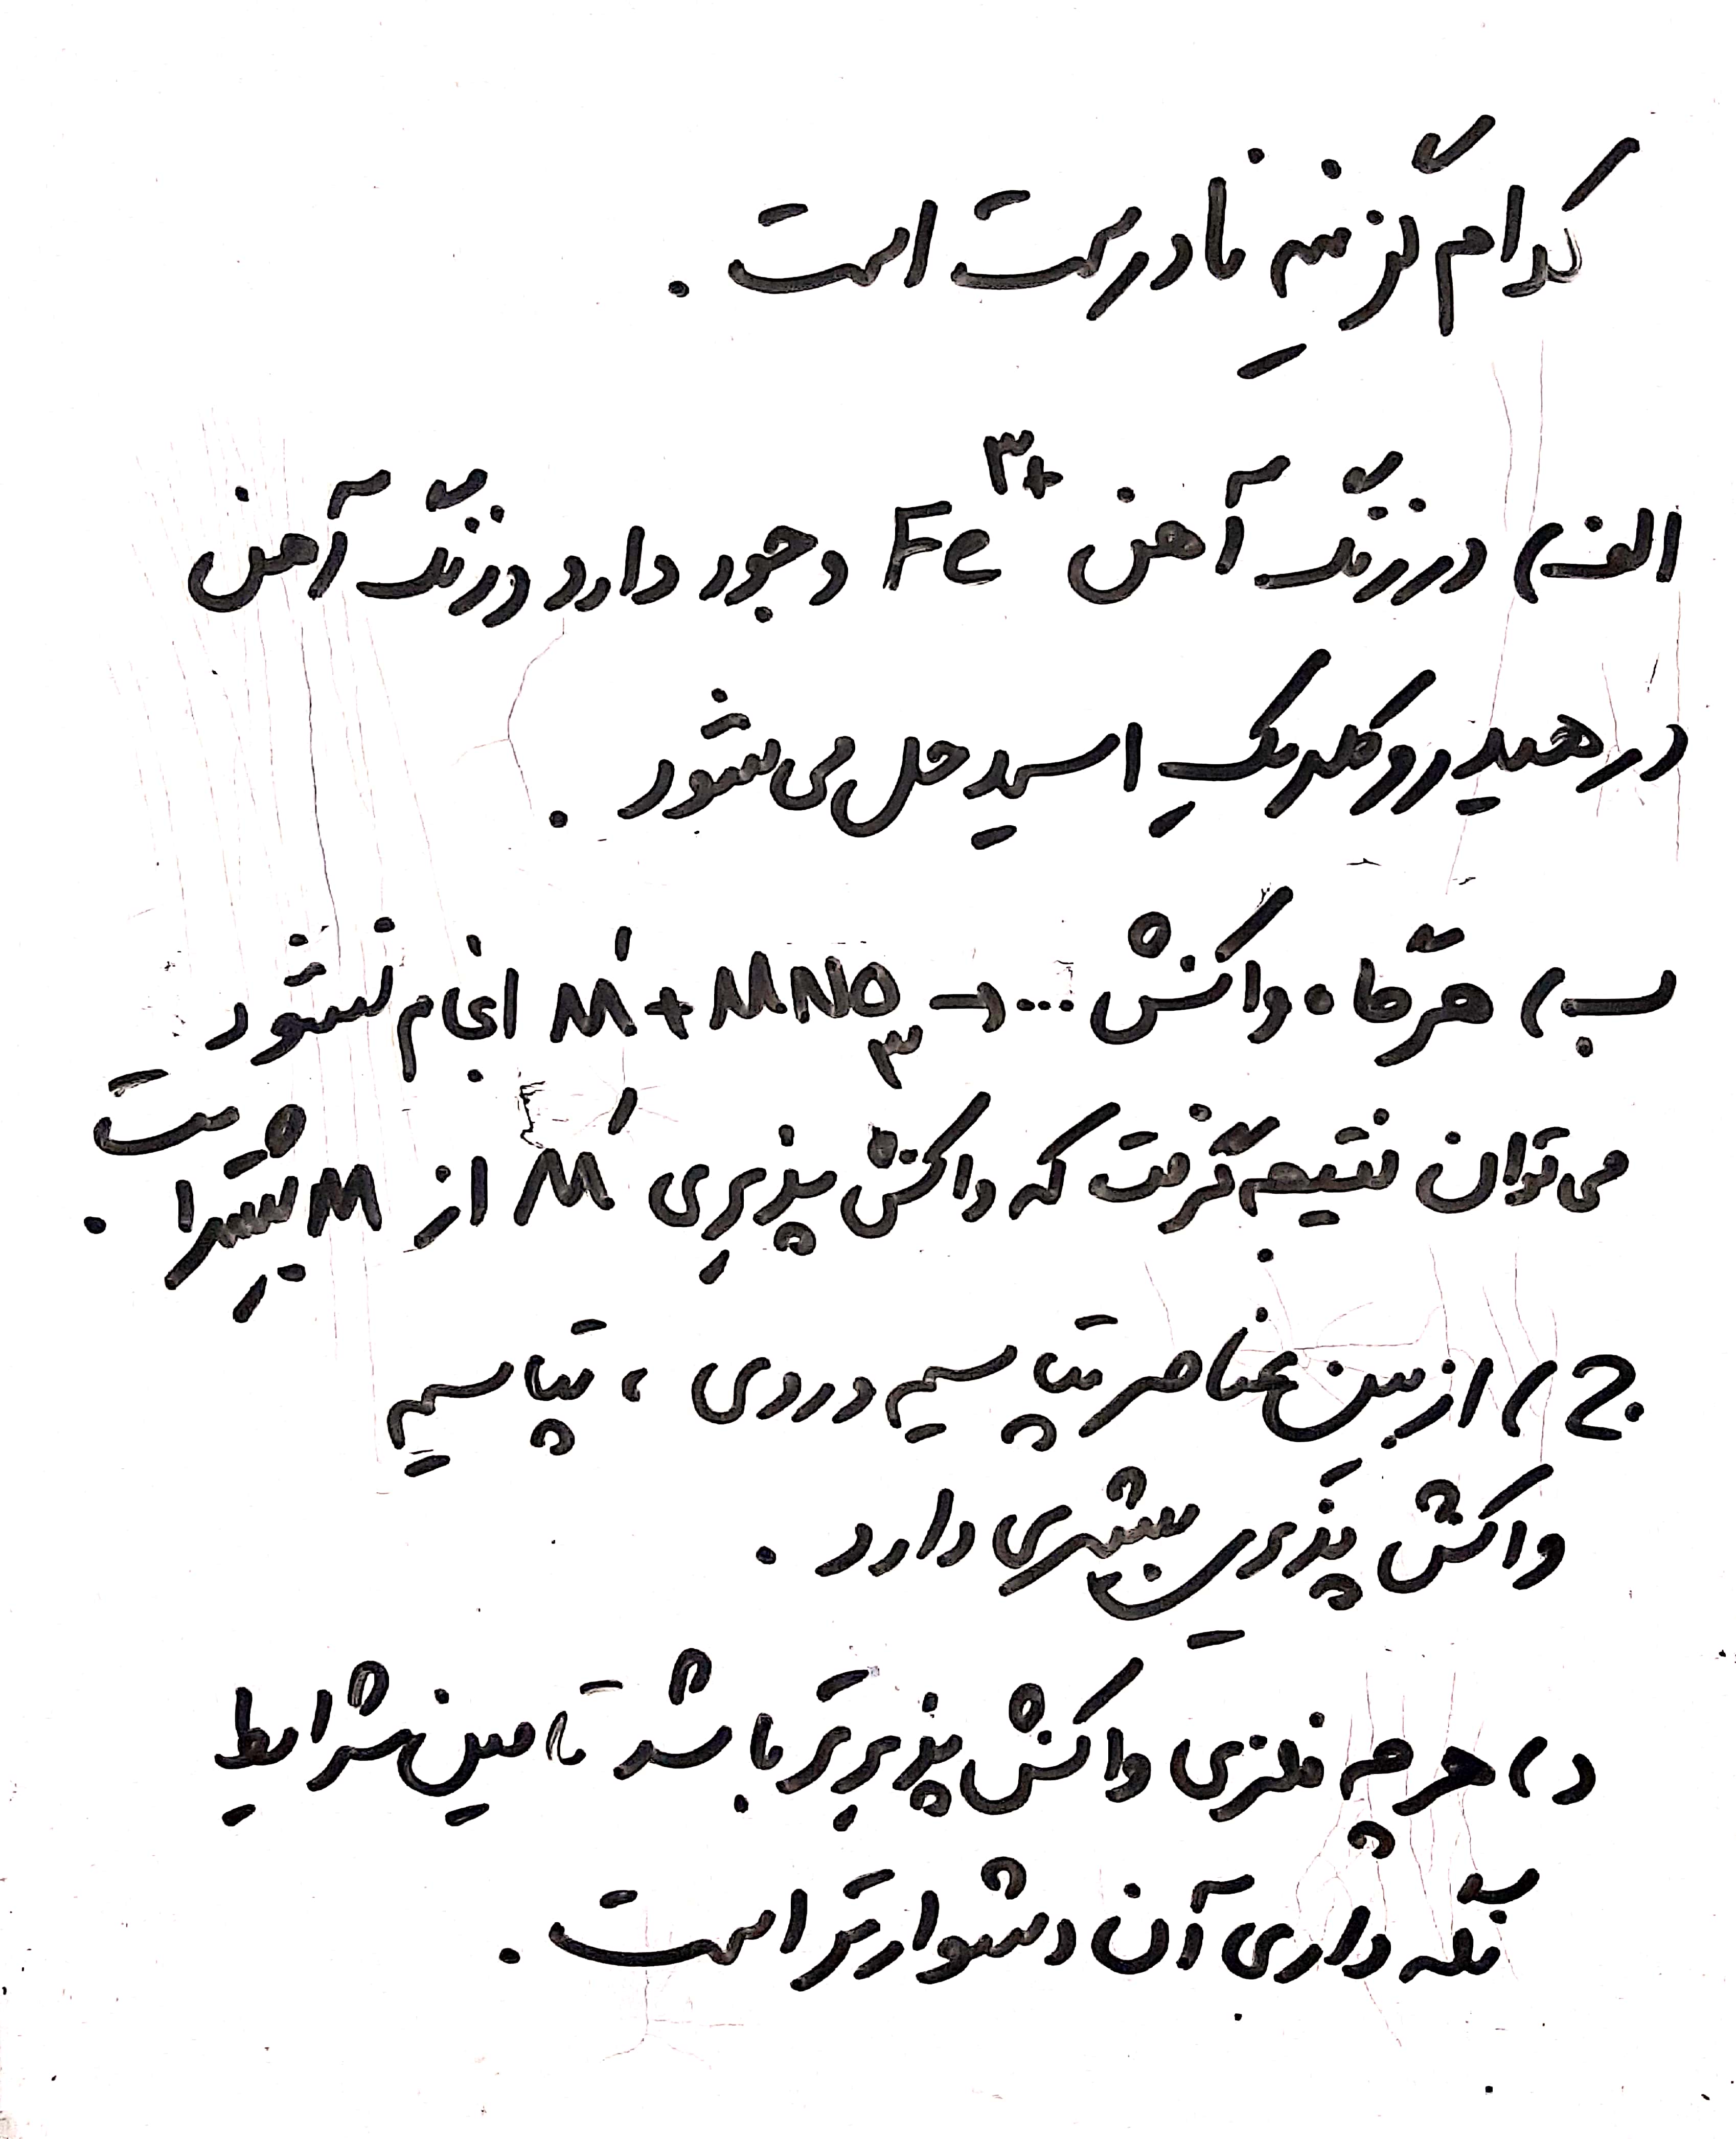 کدام گزینه نادرست است.
الف) در زنگ آهن Fe³⁺ وجود دارد و زنگ آهن
در هیدروکلریکِ اسید حل می‌شود.
ب) هرگاه واکنش ... → M' + MNO₃ انجام نشود
می‌توان نتیجه گرفت که واکنش پذیری M' از M بیشتر است.
ج) از بین عناصر پتاسیم و روی ، پتاسیم
واکنش پذیری بیشتری دارد.
د) هر چه فلزی واکنش پذیرتر باشد تامین شرایط
نگه داری آن دشوارتر است.